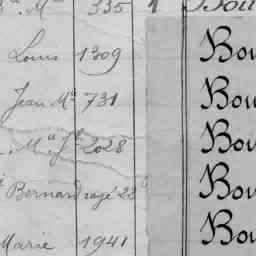 Mie 335 1 Bou
Louis 1309 Bou
Jean Mie 731 Bou
Mie Jh 2028 Bou
Bernard rayé 22 Bou
Marie 1941 Bou